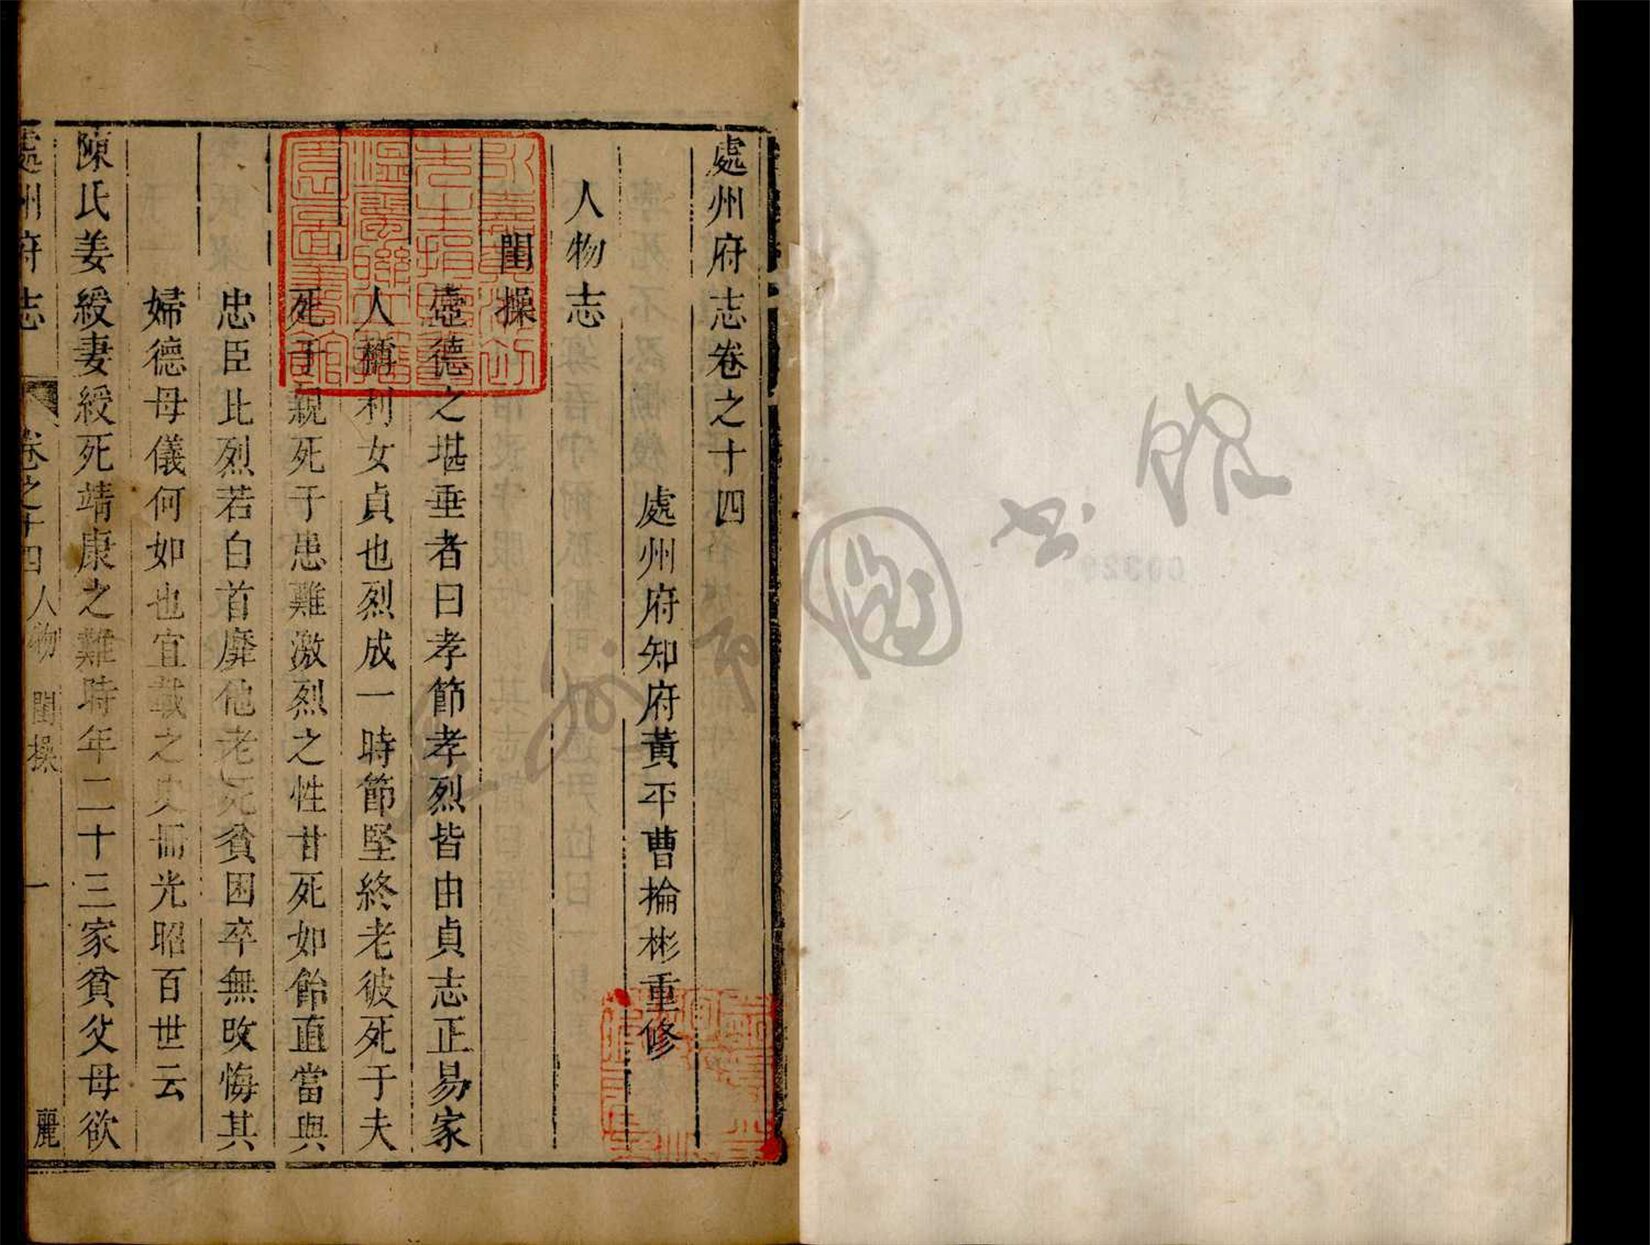 處州府志卷之十四
處州府知府黃平曹掄彬重修
人物志
閨操
壺德之堪垂者曰孝節孝烈皆由貞志正易家
人藉利女貞也烈成一時節堅終老彼死于夫
死于親死于患難激烈之性甘死如飴直當與
忠臣比烈若白首靡他老死貧困卒無改悔其
婦德母儀何如也宜載之史冊光昭百世云
陳氏姜綬妻綬死靖康之難時年二十三家貧父母欲
處州府志 卷之十四 人物 閨操 一 麗
溫州市圖書館